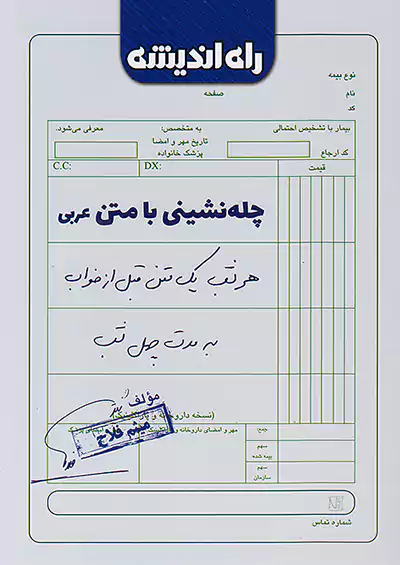 راه اندیشه
نوع بیمه
نام
صفحه
کد
بیمار با تشخیص احتمالی
به متخصص:
معرفی می‌شود.
کد ارجاع
تاریخ مهر و امضا
پزشک خانواده
قیمت
DX:
C.C:
چله‌نشینی با متن عربی
هر شب یک متن قبل از خواب
به مدت چهل شب
مؤلف
میثم فلاح
(نسخه داروخانه و پاراکلینیک)
جمع:
مهر و امضای داروخانه و
سهم
بیمه شده
سهم
سازمان
شماره تماس